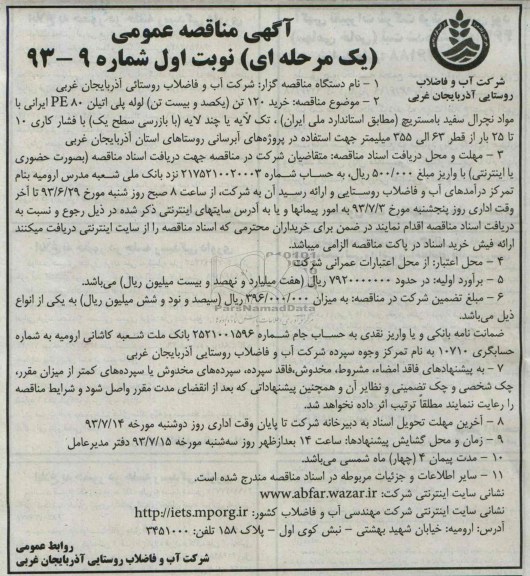 آگهی مناقصه عمومی
(یک مرحله ای) نوبت اول شماره ۹ – ۹۳
شرکت آب و فاضلاب
روستایی آذربایجان غربی
۱ – نام دستگاه مناقصه گزار: شرکت آب و فاضلاب روستائی آذربایجان غربی
۲ – موضوع مناقصه: خرید ۱۲۰ تن (یکصد و بیست تن) لوله پلی اتیلن PE ۸۰ ایرانی با
مواد نچرال سفید بامستربچ (مطابق استاندارد ملی ایران) ، تک لایه یا چند لایه (با بازرسی سطح یک) با فشار کاری ۱۰
تا ۲۵ بار از قطر ۶۳ الی ۳۵۵ میلیمتر جهت استفاده در پروژه‌های آبرسانی روستاهای استان آذربایجان غربی
۳ – مهلت و محل دریافت اسناد مناقصه: متقاضیان شرکت در مناقصه جهت دریافت اسناد مناقصه (بصورت حضوری
یا اینترنتی) با واریز مبلغ ۵۰۰/۰۰۰ ریال، به حساب شماره ۲۱۷۵۲۱۰۰۲۰۰۰۳ نزد بانک ملی شعبه مدرس ارومیه بنام
تمرکز درآمدهای آب و فاضلاب روستایی و ارائه رسید آن به شرکت، از ساعت ۸ صبح روز شنبه مورخ ۹۳/۶/۲۹ تا آخر
وقت اداری روز پنجشنبه مورخ ۹۳/۷/۳ به امور پیمانها و یا به آدرس سایتهای اینترنتی ذکر شده در ذیل رجوع و نسبت به
دریافت اسناد مناقصه اقدام نمایند در ضمن برای خریداران محترمی که اسناد مناقصه را از سایت اینترنتی دریافت میکنند
ارائه فیش خرید اسناد در پاکت مناقصه الزامی میباشد.
۴ – محل اعتبار: از محل اعتبارات عمرانی شرکت
۵ – برآورد اولیه: در حدود ۷۹۲۰۰۰۰۰۰۰ ریال (هفت میلیارد و نهصد و بیست میلیون ریال) می‌باشد.
۶ – مبلغ تضمین شرکت در مناقصه: به میزان ۳۹۶/۰۰۰/۰۰۰ ریال (سیصد و نود و شش میلیون ریال) به یکی از انواع
ذیل می‌باشد.
ضمانت نامه بانکی و یا واریز نقدی به حساب جام شماره ۲۵۲۱۰۰۱۵۹۶ بانک ملت شعبه کاشانی ارومیه به شماره
حسابگری ۱۰۷۱۰ به نام تمرکز وجوه سپرده شرکت آب و فاضلاب روستایی آذربایجان غربی
۷ – به پیشنهادهای فاقد امضاء، مشروط، مخدوش، فاقد سپرده، سپرده‌های مخدوش یا سپرده‌های کمتر از میزان مقرر،
چک شخصی و چک تضمینی و نظایر آن و همچنین پیشنهاداتی که بعد از انقضای مدت مقرر واصل شود و شرایط مناقصه
را رعایت ننمایند مطلقاً ترتیب اثر داده نخواهد شد.
۸ – آخرین مهلت تحویل اسناد به دبیرخانه شرکت تا پایان وقت اداری روز دوشنبه مورخه ۹۳/۷/۱۴
۹ – زمان و محل گشایش پیشنهادها: ساعت ۱۴ بعدازظهر روز سه‌شنبه مورخه ۹۳/۷/۱۵ دفتر مدیرعامل
۱۰ – مدت پیمان ۴ (چهار) ماه شمسی می‌باشد.
۱۱ – سایر اطلاعات و جزئیات مربوطه در اسناد مناقصه مندرج شده است.
نشانی سایت اینترنتی شرکت: www.abfar.wazar.ir
نشانی سایت اینترنتی شرکت مهندسی آب و فاضلاب کشور: http://iets.mporg.ir
آدرس: ارومیه: خیابان شهید بهشتی – نبش کوی اول – پلاک ۱۵۸ تلفن: ۳۴۵۱۰۰۰
روابط عمومی
شرکت آب و فاضلاب روستایی آذربایجان غربی
ParsNamadData